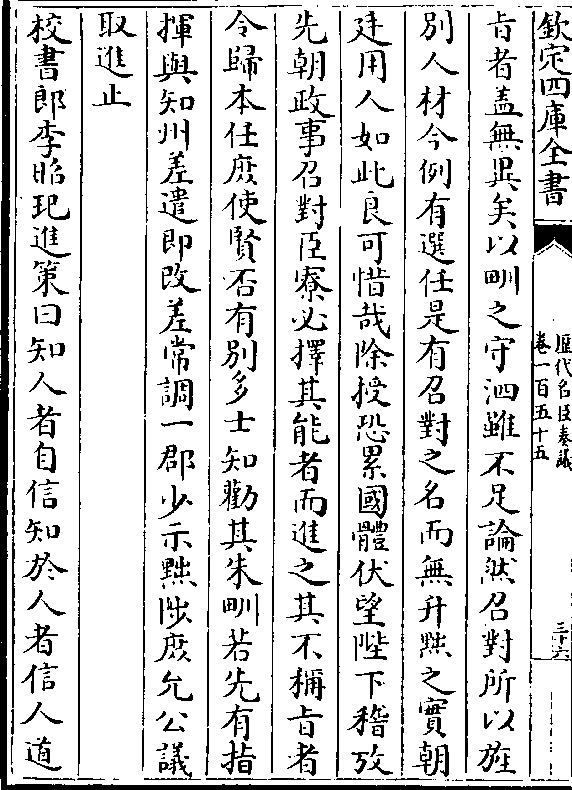 欽定四庫全書
歷代名臣奏議
卷一百五十五
三十六
㫖者盖無異矣以甽之守泗雖不足論然召對所以旌
别人材今例有選任是有召對之名而無升黜之實朝
廷用人如此良可惜哉除授恐累國體伏望陛下稽攷
先朝政事召對臣寮必擇其能者而進之其不稱㫖者
令歸本任庶使賢否有别多士知勸其朱甽若先有指
揮與知州差遣即改差常調一郡少示黜陟庶允公議
取進止
校書郎李昭玘進策曰知人者自信知於人者信人道